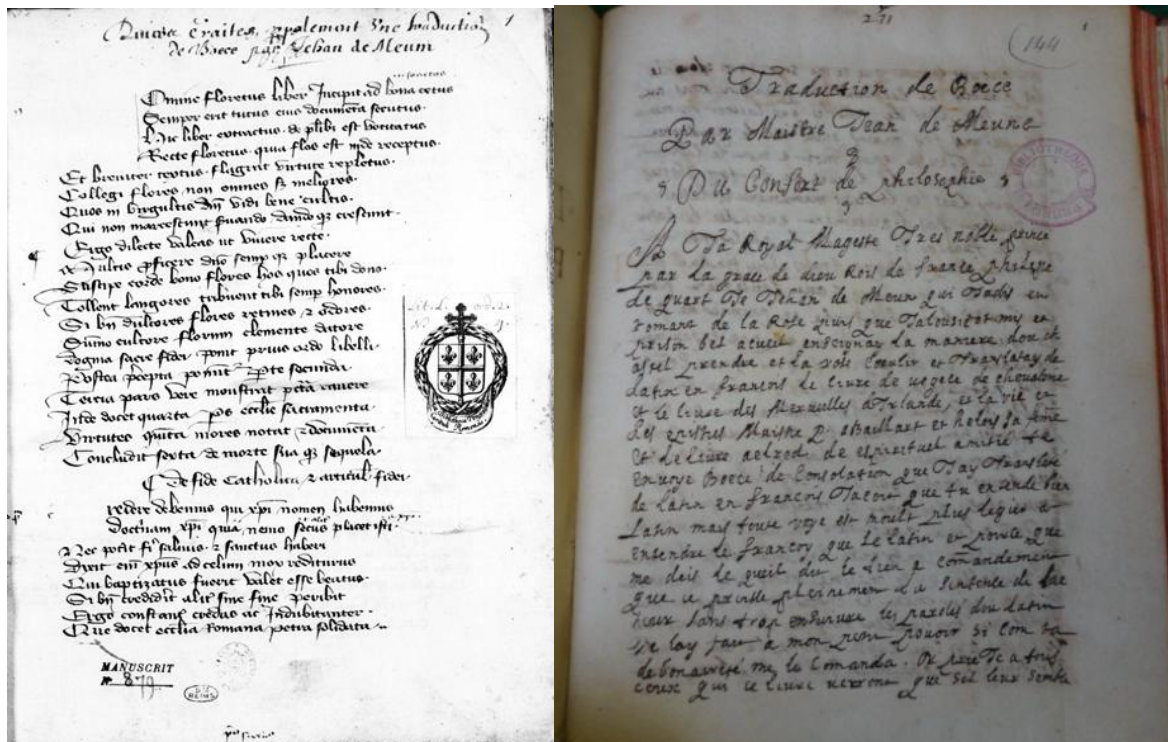 de Boece par Jehan de Meum
1
Omine floretus liber Incipit ad bona cetus
Semper erit tutus eius documenta secutus
Hic liber extractus de
Recte floretus quia flos est inde receptus
Et breviter textus flagrat virtute repletus
Collegi flores non omnes sz meliores
Quos in virgultis dni vidi bene cultis
Qui non marcescunt dando qz crescunt
Ergo dilecte valeas ut vivere recte
semp qz placere
Suscipe corde bono flores hos quos tibi dono
Tollent langores tribuent tibi semp honores
Si bn dulcores flores retines z odores
Sumo cultore florum clemente datore
Dogma sacre fidei ponit prius ordo libelli
Postea pcepta ponit pte secunda
Tercia pars vere monstrat pctā cavere
Inde docet quarta ecclie sacramenta
Virtutes quinta mores notat z documenta
Concludit sexta de morte sua qz sequela
De fide Catholica z articul fidei
redere debemus qui xpi nomen habemus
doctrinam xpi quia nemo placet isti
Nec potit salvus z sanctus haberi
Dixit xpus ad celum mox rediturus
Qui baptizatus fuerit valet esse beatus
Si bn credidit alit sine fine peribit
Ergo constans credas ac Indubitanter
Que docet ecclia Romana petra solidata
MANUSCRIT
N° 879
REIMS
271
144
Traduction de Boece
Par Maistre Jean de Meune
Du Confort de philosophie
A Ta Royal Mageste Tres noble prince
par la grace de dieu Rois de france phelippe
le quart Je Jehan de Meun qui Jadis en
romans de la Rose puis que Jalousie ot mis en
prison bel acueil enseignai la maniere dou ch
astel prendre et la rose cueulir et Translatay de
latin en francois le livre de vegece de chevalerie
et le livre des Merveilles d'Irlande, et la vie et
les epistres Maistre P. abaillart et helois sa feme
et le livre aelred de espirituel amitie te
envoye Boece de Consolation que Jay Translate
de latin en francois Jacoit que tu entende bien
latin mais toute voye est moult plus legier a
entendre le francoy que le latin et pource que
me deis le queil dit je tien a comandement
que je preisse pleinement la sentence de lac
teur sans trop ensuivre les paroles dou latin
je lay fait a mon petit povoir si com ta
debonairete me le comanda. Or prie Je a tous
ceux qui ce livre verront que seil leur semble